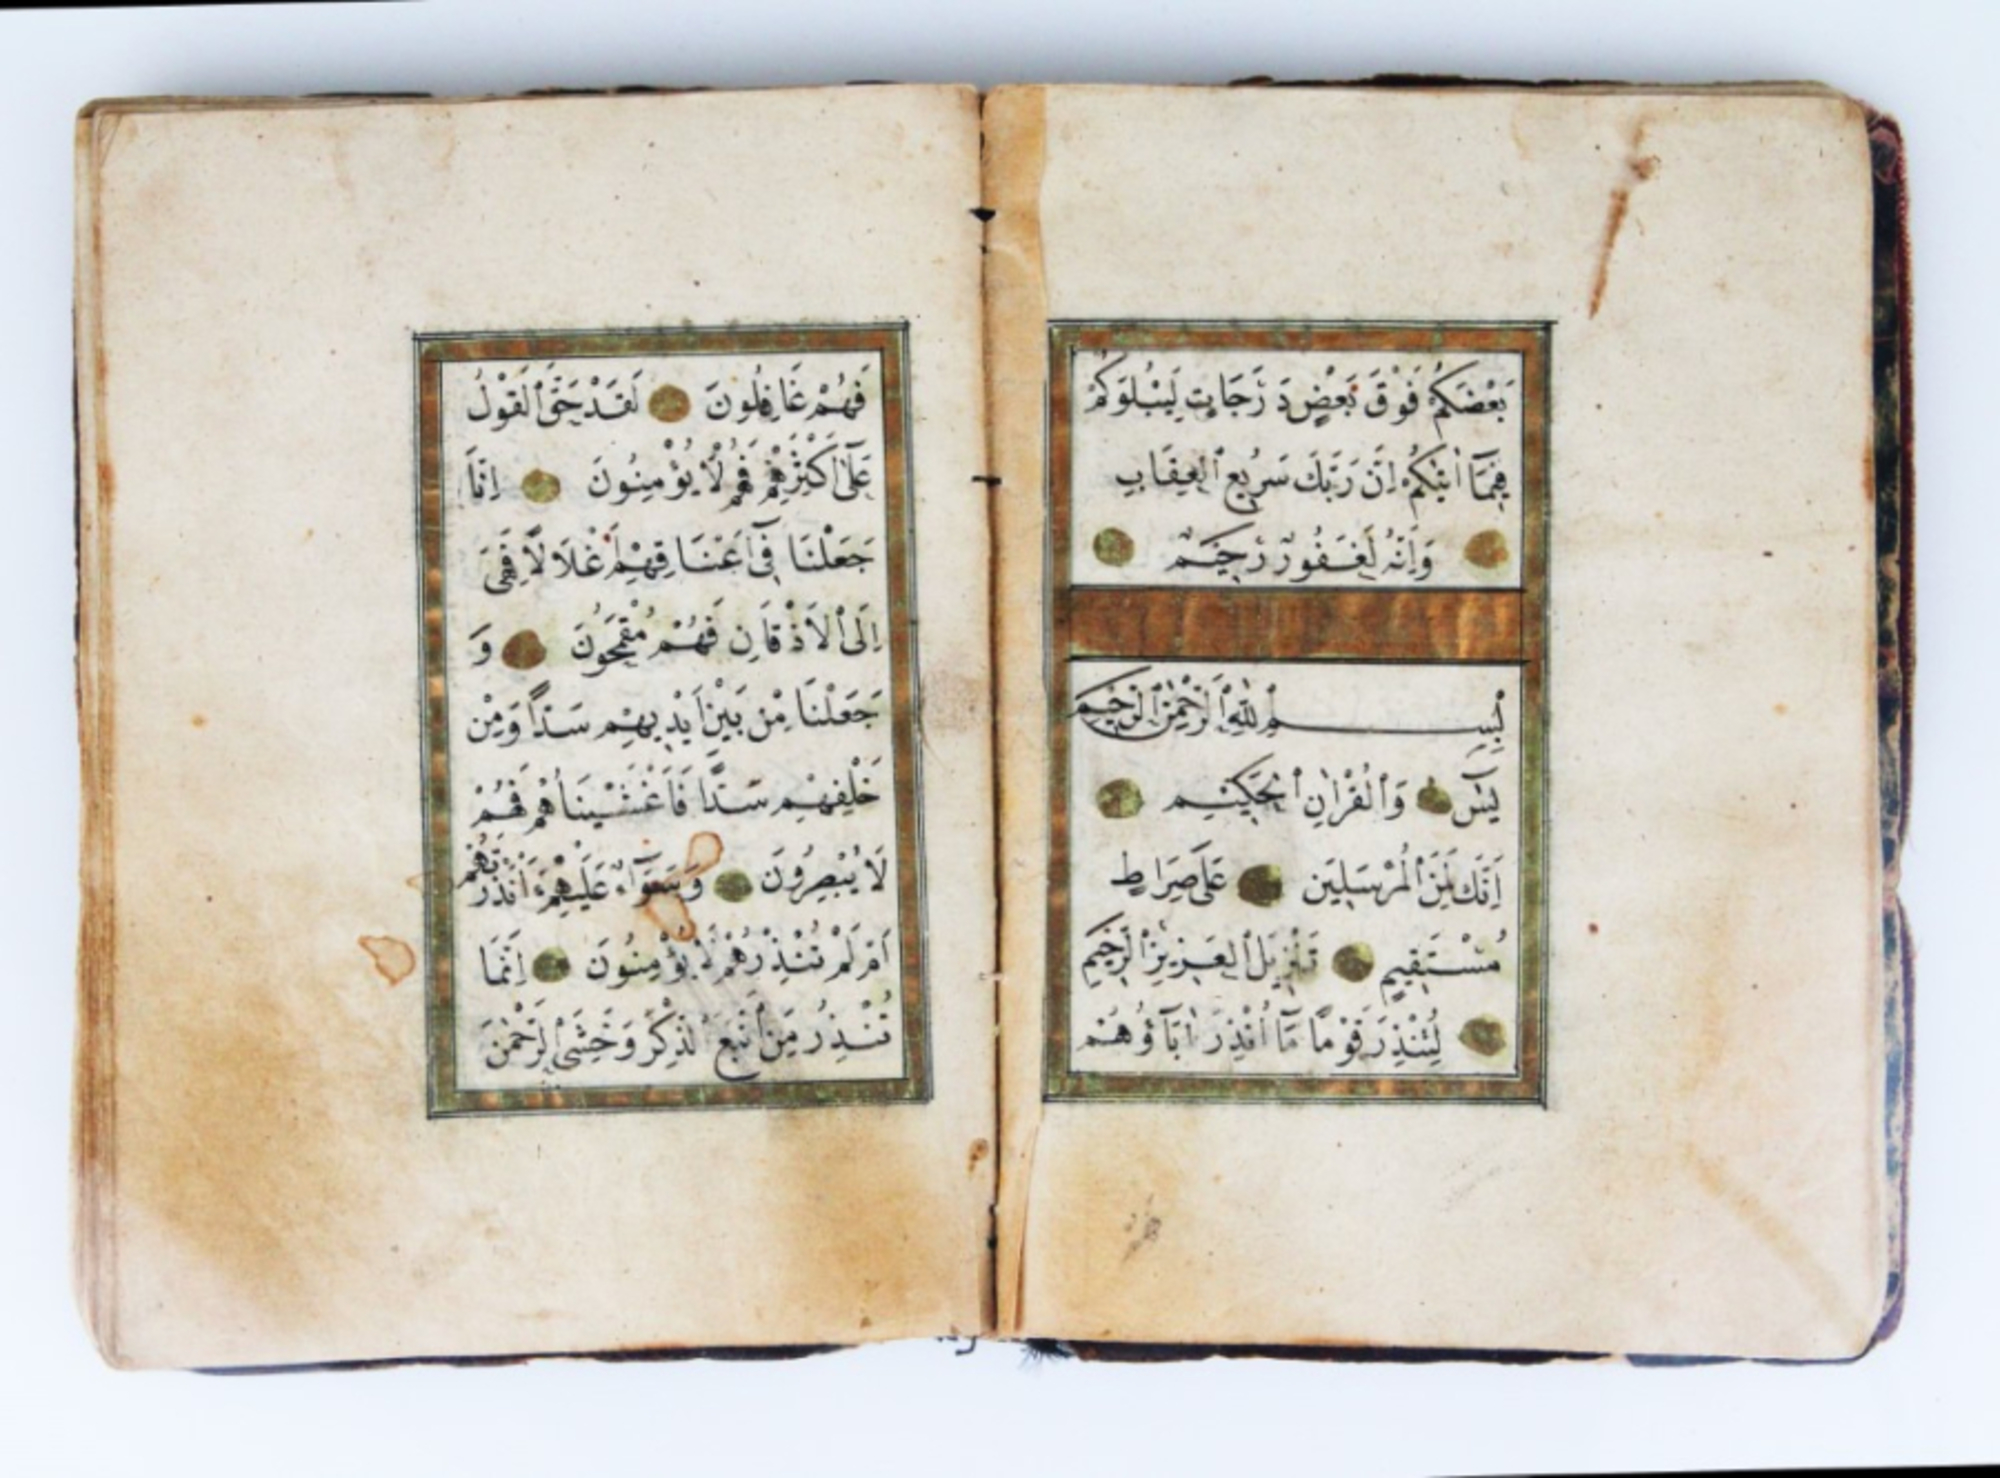 بَعْضَكُمْ فَوْقَ بَعْضٍ دَرَجَاتٍ لِيَبْلُوَكُمْ
فِيمَٓا اٰتٰيكُمْ اِنَّ رَبَّكَ سَرِيعُ الْعِقَابِ
وَاِنَّهُ لَغَفُورٌ رَحِيمٌ
بِسْمِ اللّٰهِ الرَّحْمٰنِ الرَّحِيمِ
يٰسٓ وَالْقُرْاٰنِ الْحَكِيمِ
اِنَّكَ لَمِنَ الْمُرْسَلِينَ عَلٰى صِرَاطٍ
مُسْتَقِيمٍ تَنْزِيلَ الْعَزِيزِ الرَّحِيمِ
لِتُنْذِرَ قَوْمًا مَٓا اُنْذِرَ اٰبَٓاؤُهُمْ
فَهُمْ غَافِلُونَ لَقَدْ حَقَّ الْقَوْلُ
عَلٰٓى اَكْثَرِهِمْ فَهُمْ لَا يُؤْمِنُونَ اِنَّا
جَعَلْنَا فِٓى اَعْنَاقِهِمْ اَغْلَالًا فَهِىَ
اِلَى الْاَذْقَانِ فَهُمْ مُقْمَحُونَ وَ
جَعَلْنَا مِنْ بَيْنِ اَيْدِيهِمْ سَدًّا وَمِنْ
خَلْفِهِمْ سَدًّا فَاَغْشَيْنَاهُمْ فَهُمْ
لَا يُبْصِرُونَ وَسَوَٓاءٌ عَلَيْهِمْ ءَاَنْذَرْتَهُمْ
اَمْ لَمْ تُنْذِرْهُمْ لَا يُؤْمِنُونَ اِنَّمَا
تُنْذِرُ مَنِ اتَّبَعَ الذِّكْرَ وَخَشِىَ الرَّحْمٰنَ